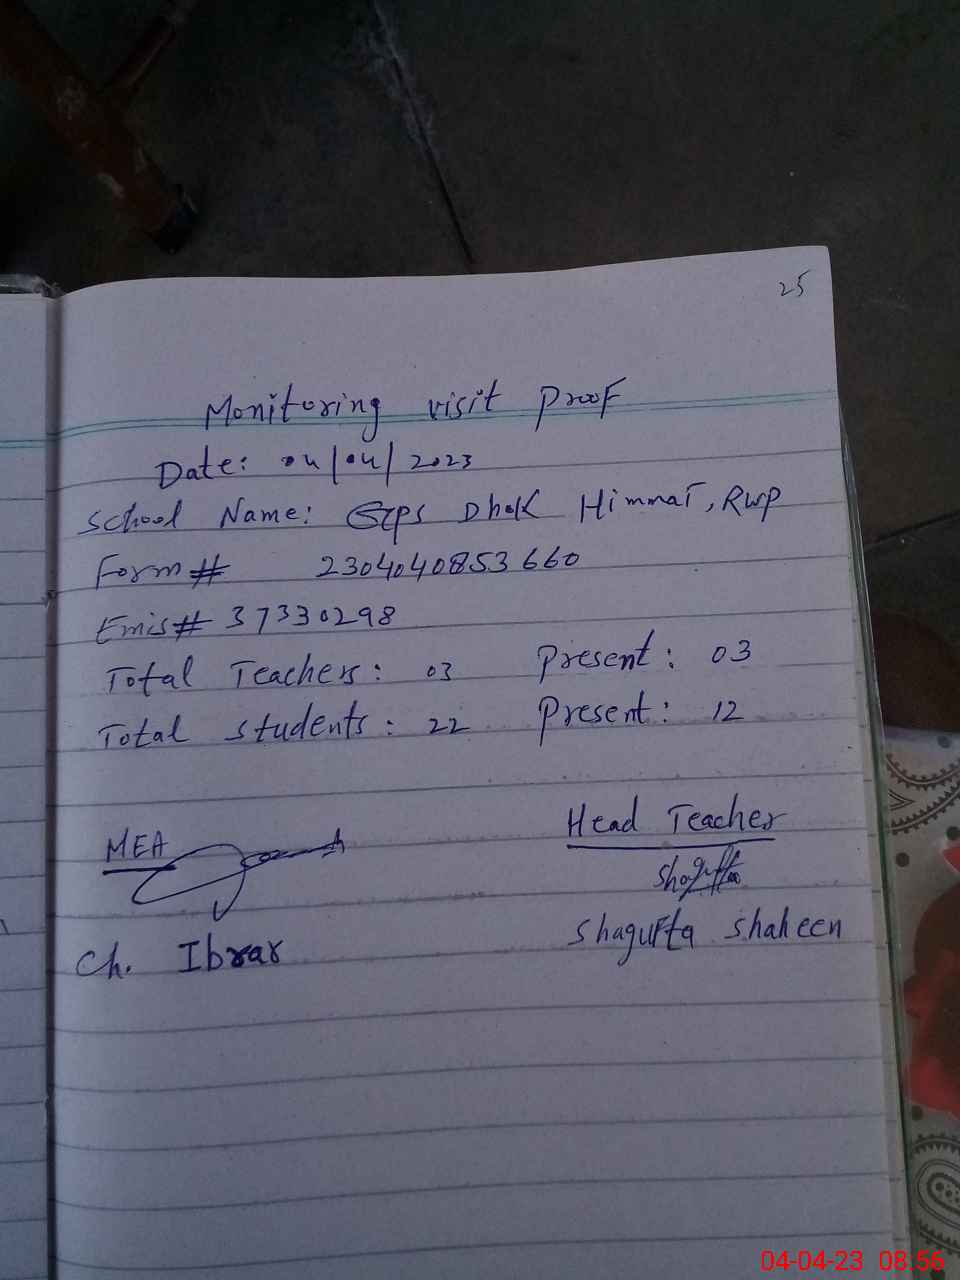 25
Monitoring visit Proof
Date: 04/04/2023
School Name: GGPS Dhok Himmat, RWP
Form# 2304040853660
Emis# 37330298
Total Teachers: 03 Present: 03
Total Students: 22 Present: 12
MEA Head Teacher
Shagufta
Ch. Ibrar Shagufta Shaheen
04-04-23 08:56